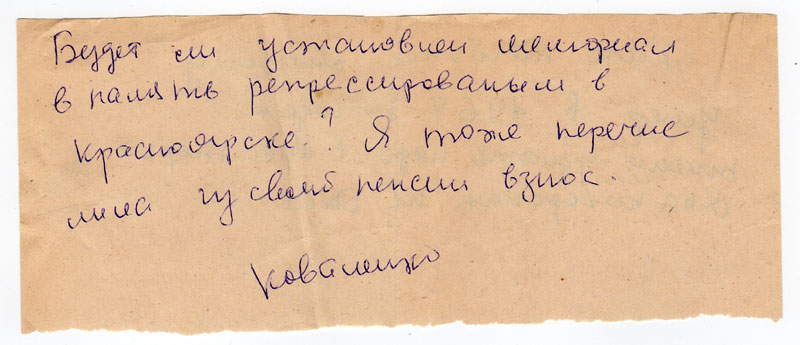 Будет ли установлен мемориал
в память репрессированым в
Красноярске? Я тоже перечис
лила из своей пенсии взнос.
Коваленко